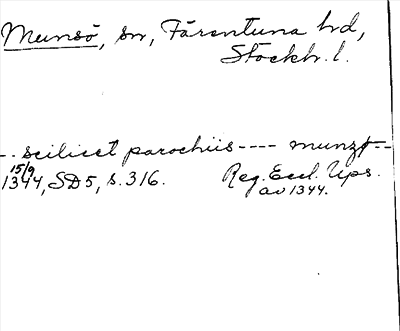 Munsö, sn, Färentuna hd,
Stockh. l.
-- scilicet parochiis ---- munzø --
15/9
1344, SD 5, s. 316. Reg. Eccl. Ups.
av 1344.